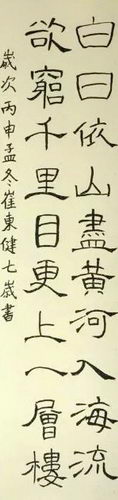 白日依山盡黃河入海流
欲窮千里目更上一層樓
歲次丙申孟冬崔東健七歲書